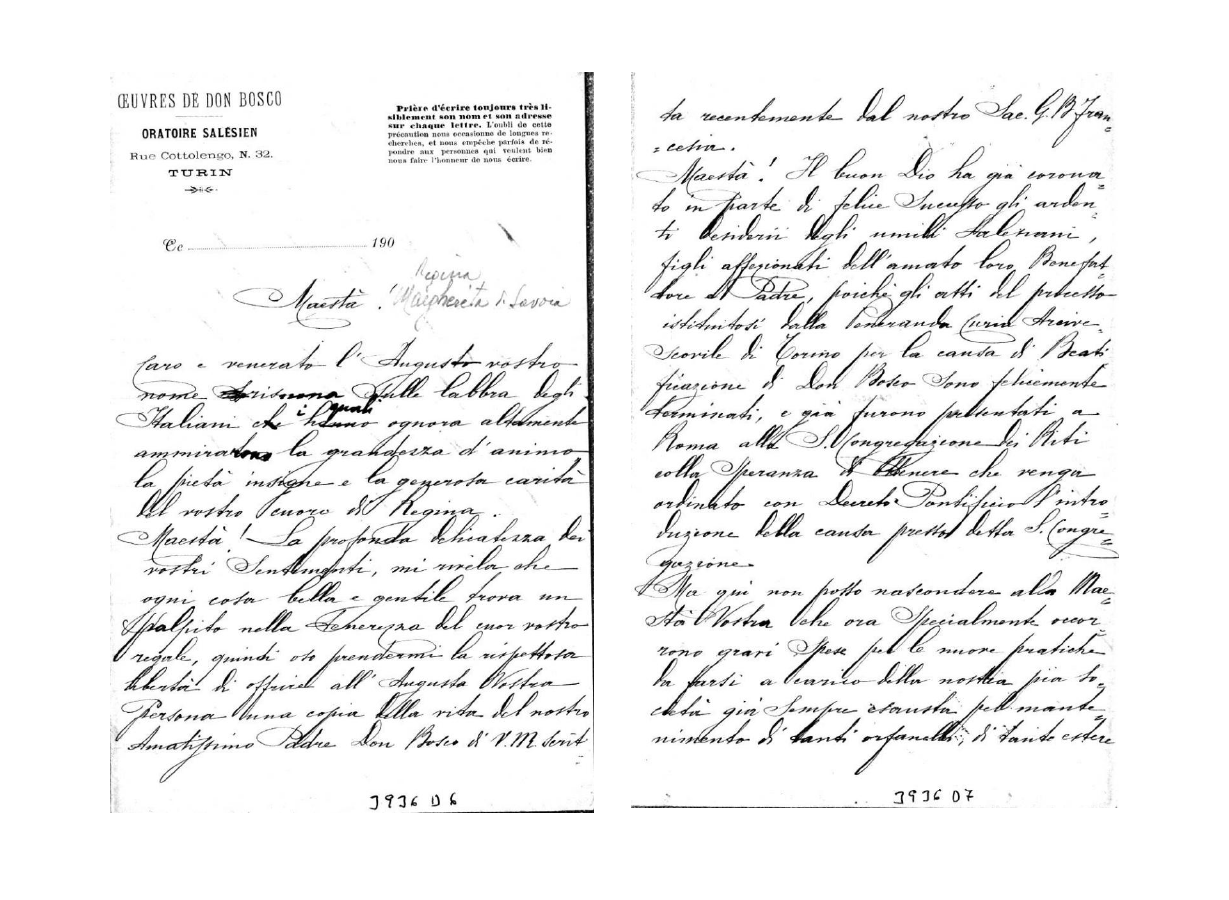 ŒUVRES DE DON BOSCO
ORATOIRE SALÉSIEN
Rue Cottolengo, N. 32.
TURIN
Prière d'écrire toujours très li-
siblement son nom et son adresse
sur chaque lettre. L'oubli de cette
précaution nous occasionne de longues re-
cherches, et nous empêche parfois de ré-
pondre aux personnes qui veulent bien
nous faire l'honneur de nous écrire.
Ce 190
Regina
Maestà! Margherita di Savoia
Caro e venerato l'Augusto vostro
nome sulle labbra degli
Italiani i quali ognora altamente
ammirano la grandezza d'animo
la pietà insigne e la generosa carità
del vostro cuore di Regina.
Maestà! La profonda delicatezza dei
vostri Sentimenti, mi rivela che
ogni cosa bella e gentile trova un
palpito nella Tenerezza del cuor vostro
regale, quindi oso prendermi la rispettosa
libertà di offrire all'Augusta Vostra
Persona una copia della vita del nostro
Amatissimo Padre Don Bosco di V. M. scrit-
3936 D6
ta recentemente dal nostro Sac. G. B. Fran=
=cesia.
Maestà! Il buon Dio ha già corona=
to in parte di felice Successo gli arden=
ti desiderii degli umili Salesiani,
figli affezionati dell'amato loro Benefat
tore e Padre, poichè gli atti del processo
istituitosi dalla Veneranda Curia Arcive=
scovile di Torino per la causa di Beati
ficazione di Don Bosco sono felicemente
terminati, e già furono presentati a
Roma alla S. Congregazione dei Riti
colla Speranza di ottenere che venga
ordinato con Decreto Pontificio l'intro=
duzione della causa presso detta S. Congre=
gazione
Ma qui non posso nascondere alla Mae=
stà Vostra che ora Specialmente occor
rono gravi Spese per le nuove pratiche
da farsi a carico della nostra pia so=
cietà già Sempre esausta pel mante=
nimento di tanti orfanelli, di tante estere
3936 D7